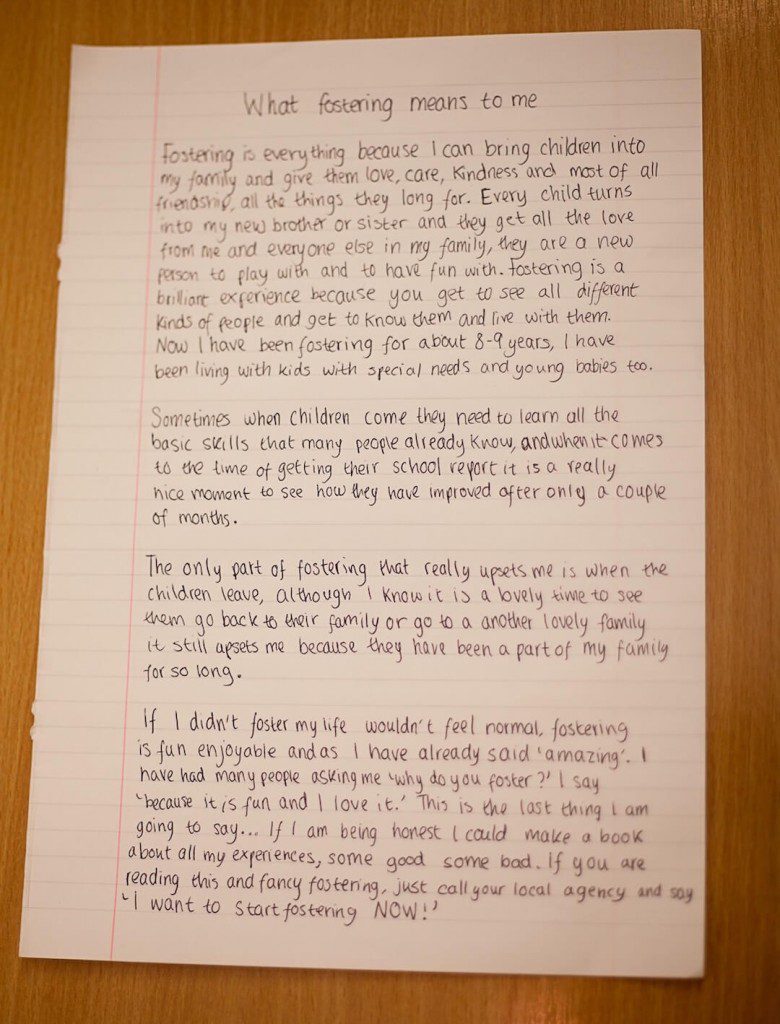 What fostering means to me
Fostering is everything because I can bring children into
my family and give them love, care, kindness and most of all
friendship, all the things they long for. Every child turns
into my new brother or sister and they get all the love
from me and everyone else in my family, they are a new
person to play with and to have fun with. Fostering is a
brilliant experience because you get to see all different
kinds of people and get to know them and live with them.
Now I have been fostering for about 8-9 years, I have
been living with kids with special needs and young babies too.
Sometimes when children come they need to learn all the
basic skills that many people already know, and when it comes
to the time of getting their school report it is a really
nice moment to see how they have improved after only a couple
of months.
The only part of fostering that really upsets me is when the
children leave, although I know it is a lovely time to see
them go back to their family or go to a another lovely family
it still upsets me because they have been a part of my family
for so long.
If I didn't foster my life wouldn't feel normal, fostering
is fun enjoyable and as I have already said 'amazing'. I
have had many people asking me 'why do you foster?' I say
'because it is fun and I love it.' This is the last thing I am
going to say... If I am being honest I could make a book
about all my experiences, some good some bad. If you are
reading this and fancy fostering, just call your local agency and say
'I want to start fostering NOW!'